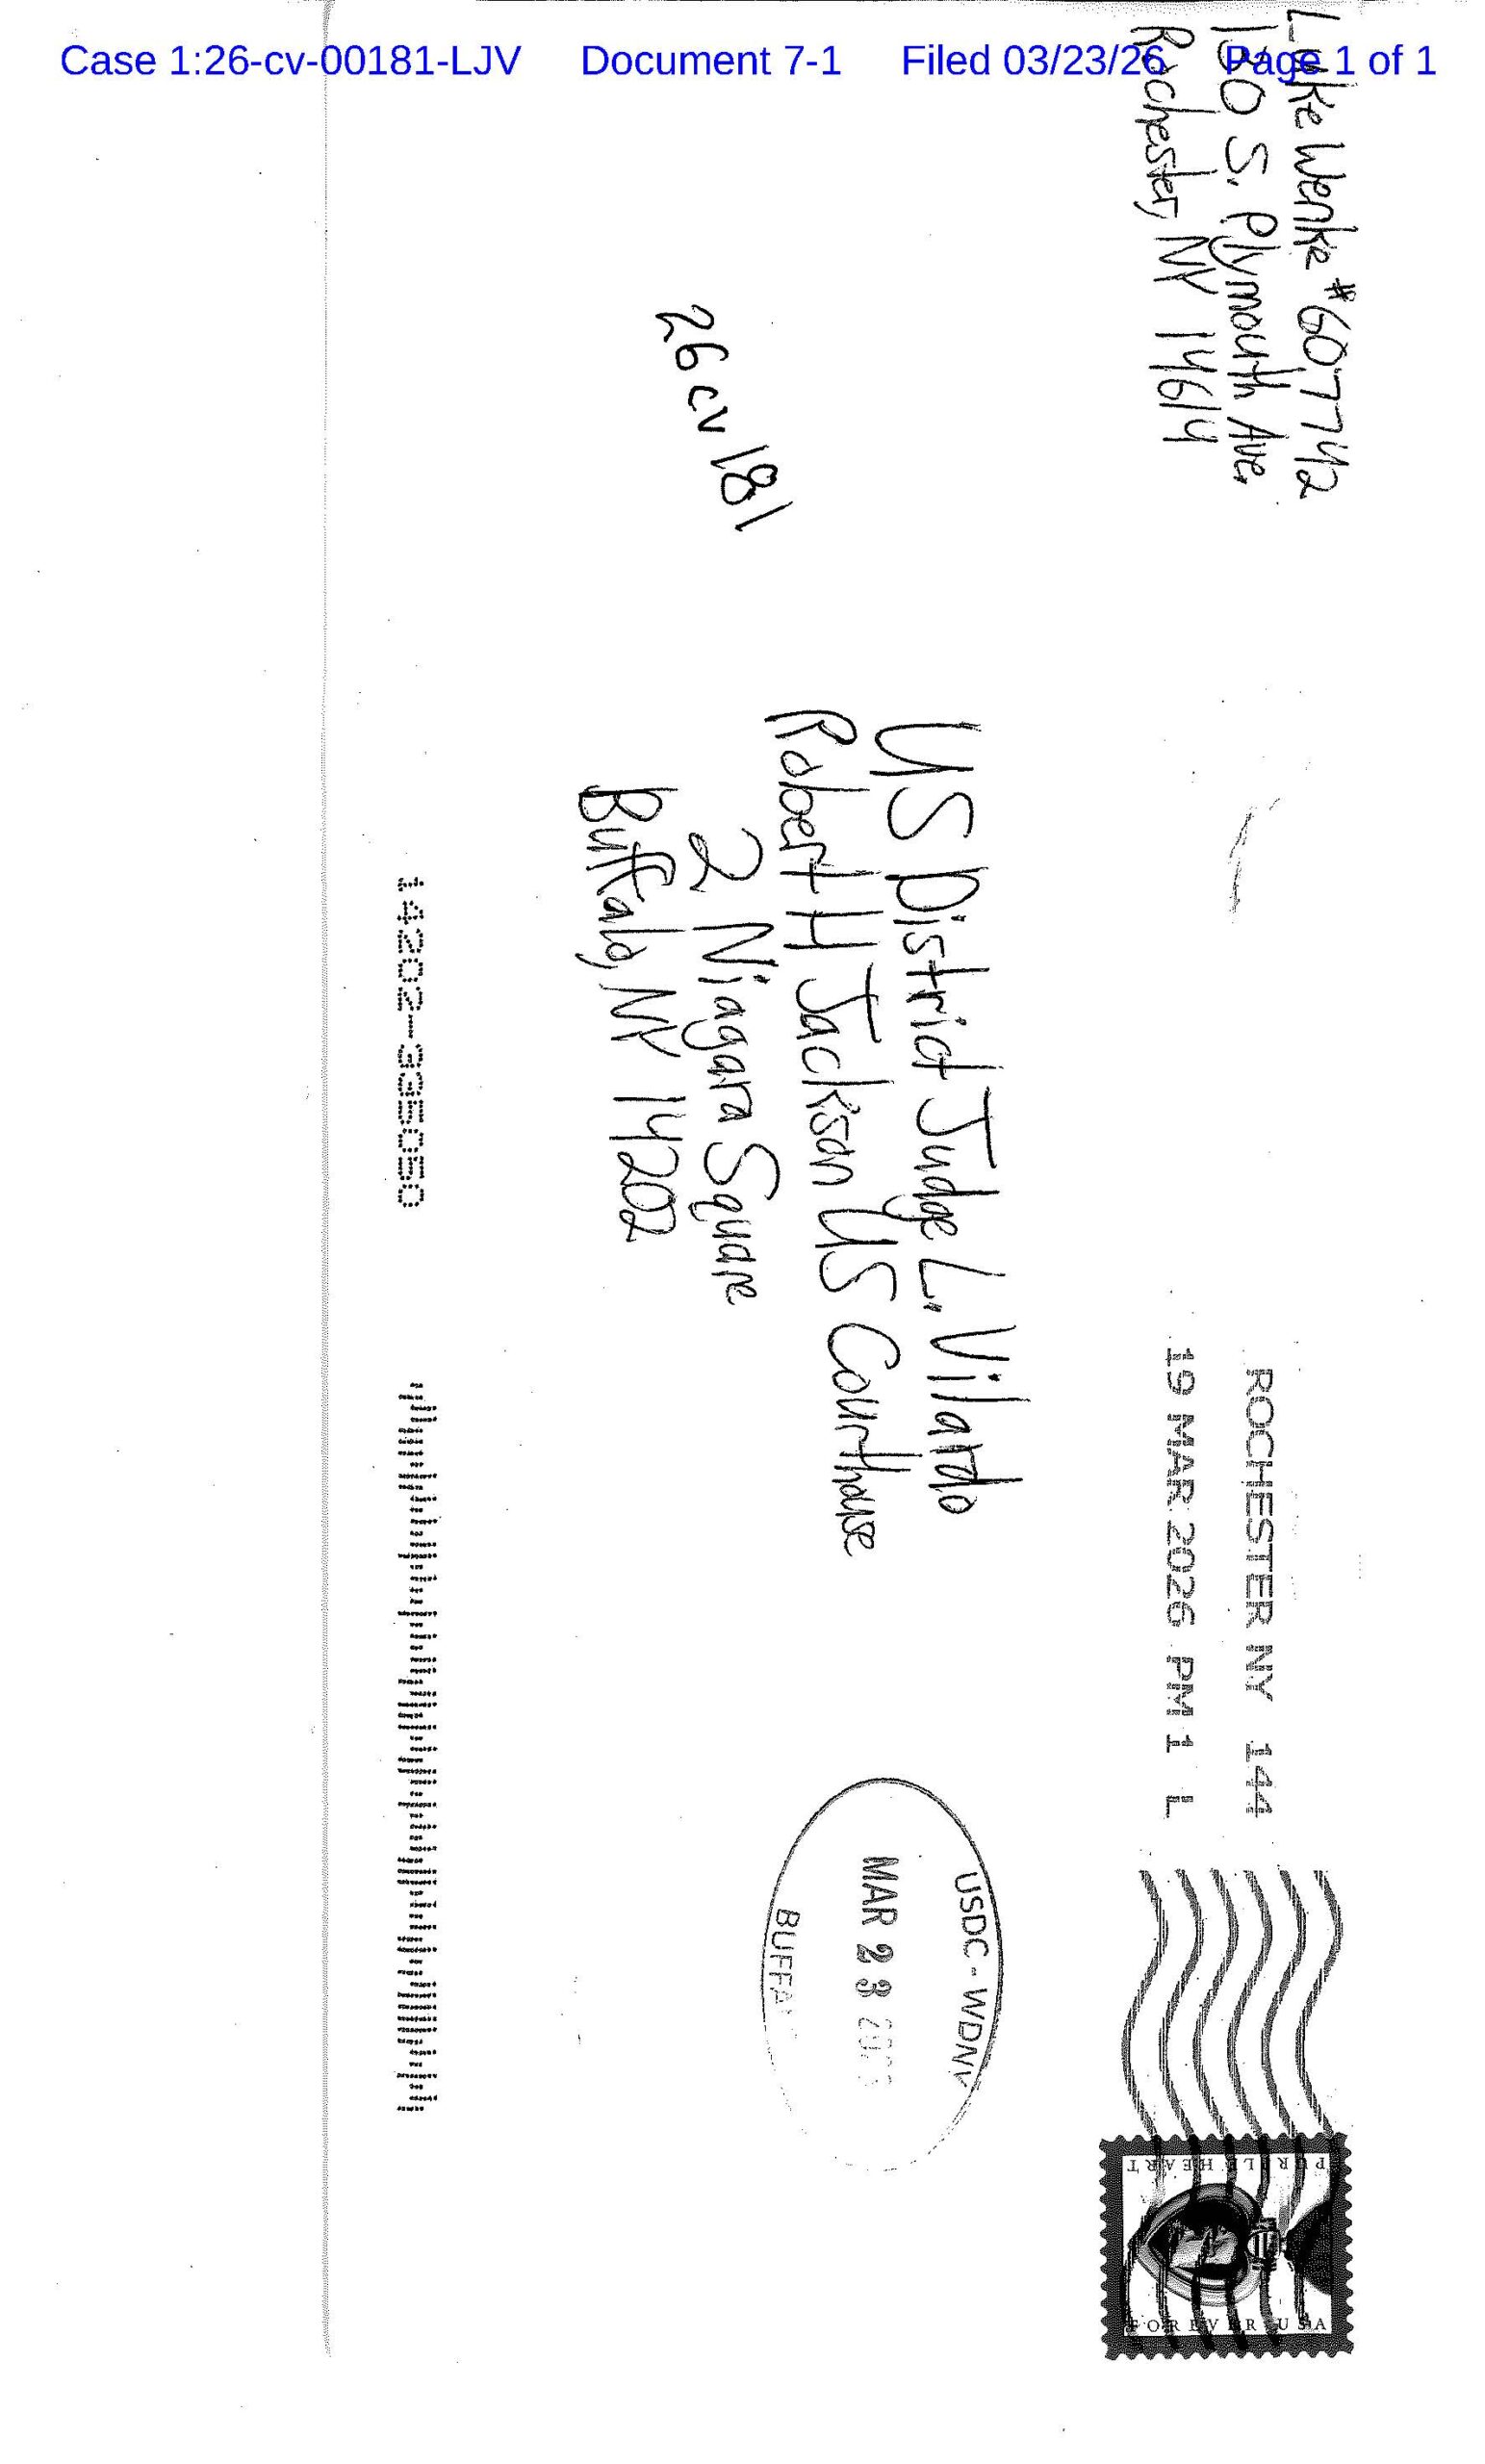 Case 1:26-cv-00181-LJV Document 7-1 Filed 03/23/26 Page 1 of 1
Luke Wenke #607742
130 S. Plymouth Ave.
Rochester, NY 14614
ROCHESTER NY 144
19 MAR 2026 PM 1 L
PURPLE HEART
FOREVER USA
26 cv 181
US District Judge L. Vilardo
Robert H Jackson US Courthouse
2 Niagara Square
Buffalo, NY 14202
USDC - WDNY
MAR 23
14202-335050